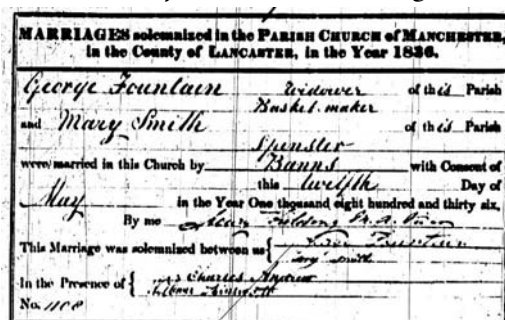 MARRIAGES solemnized in the PARISH CHURCH of MANCHESTER,
in the County of LANCASTER, in the Year 1836.
George Fountain Widower of this Parish
Basket maker
and Mary Smith of this Parish
Spinster
were married in this Church by Banns with Consent of
this twelfth Day of
May in the Year One thousand eight hundred and thirty six,
By me M.A.
This Marriage was solemnized between us { Fountain
Smith
In the Presence of { Charles
No. 1108